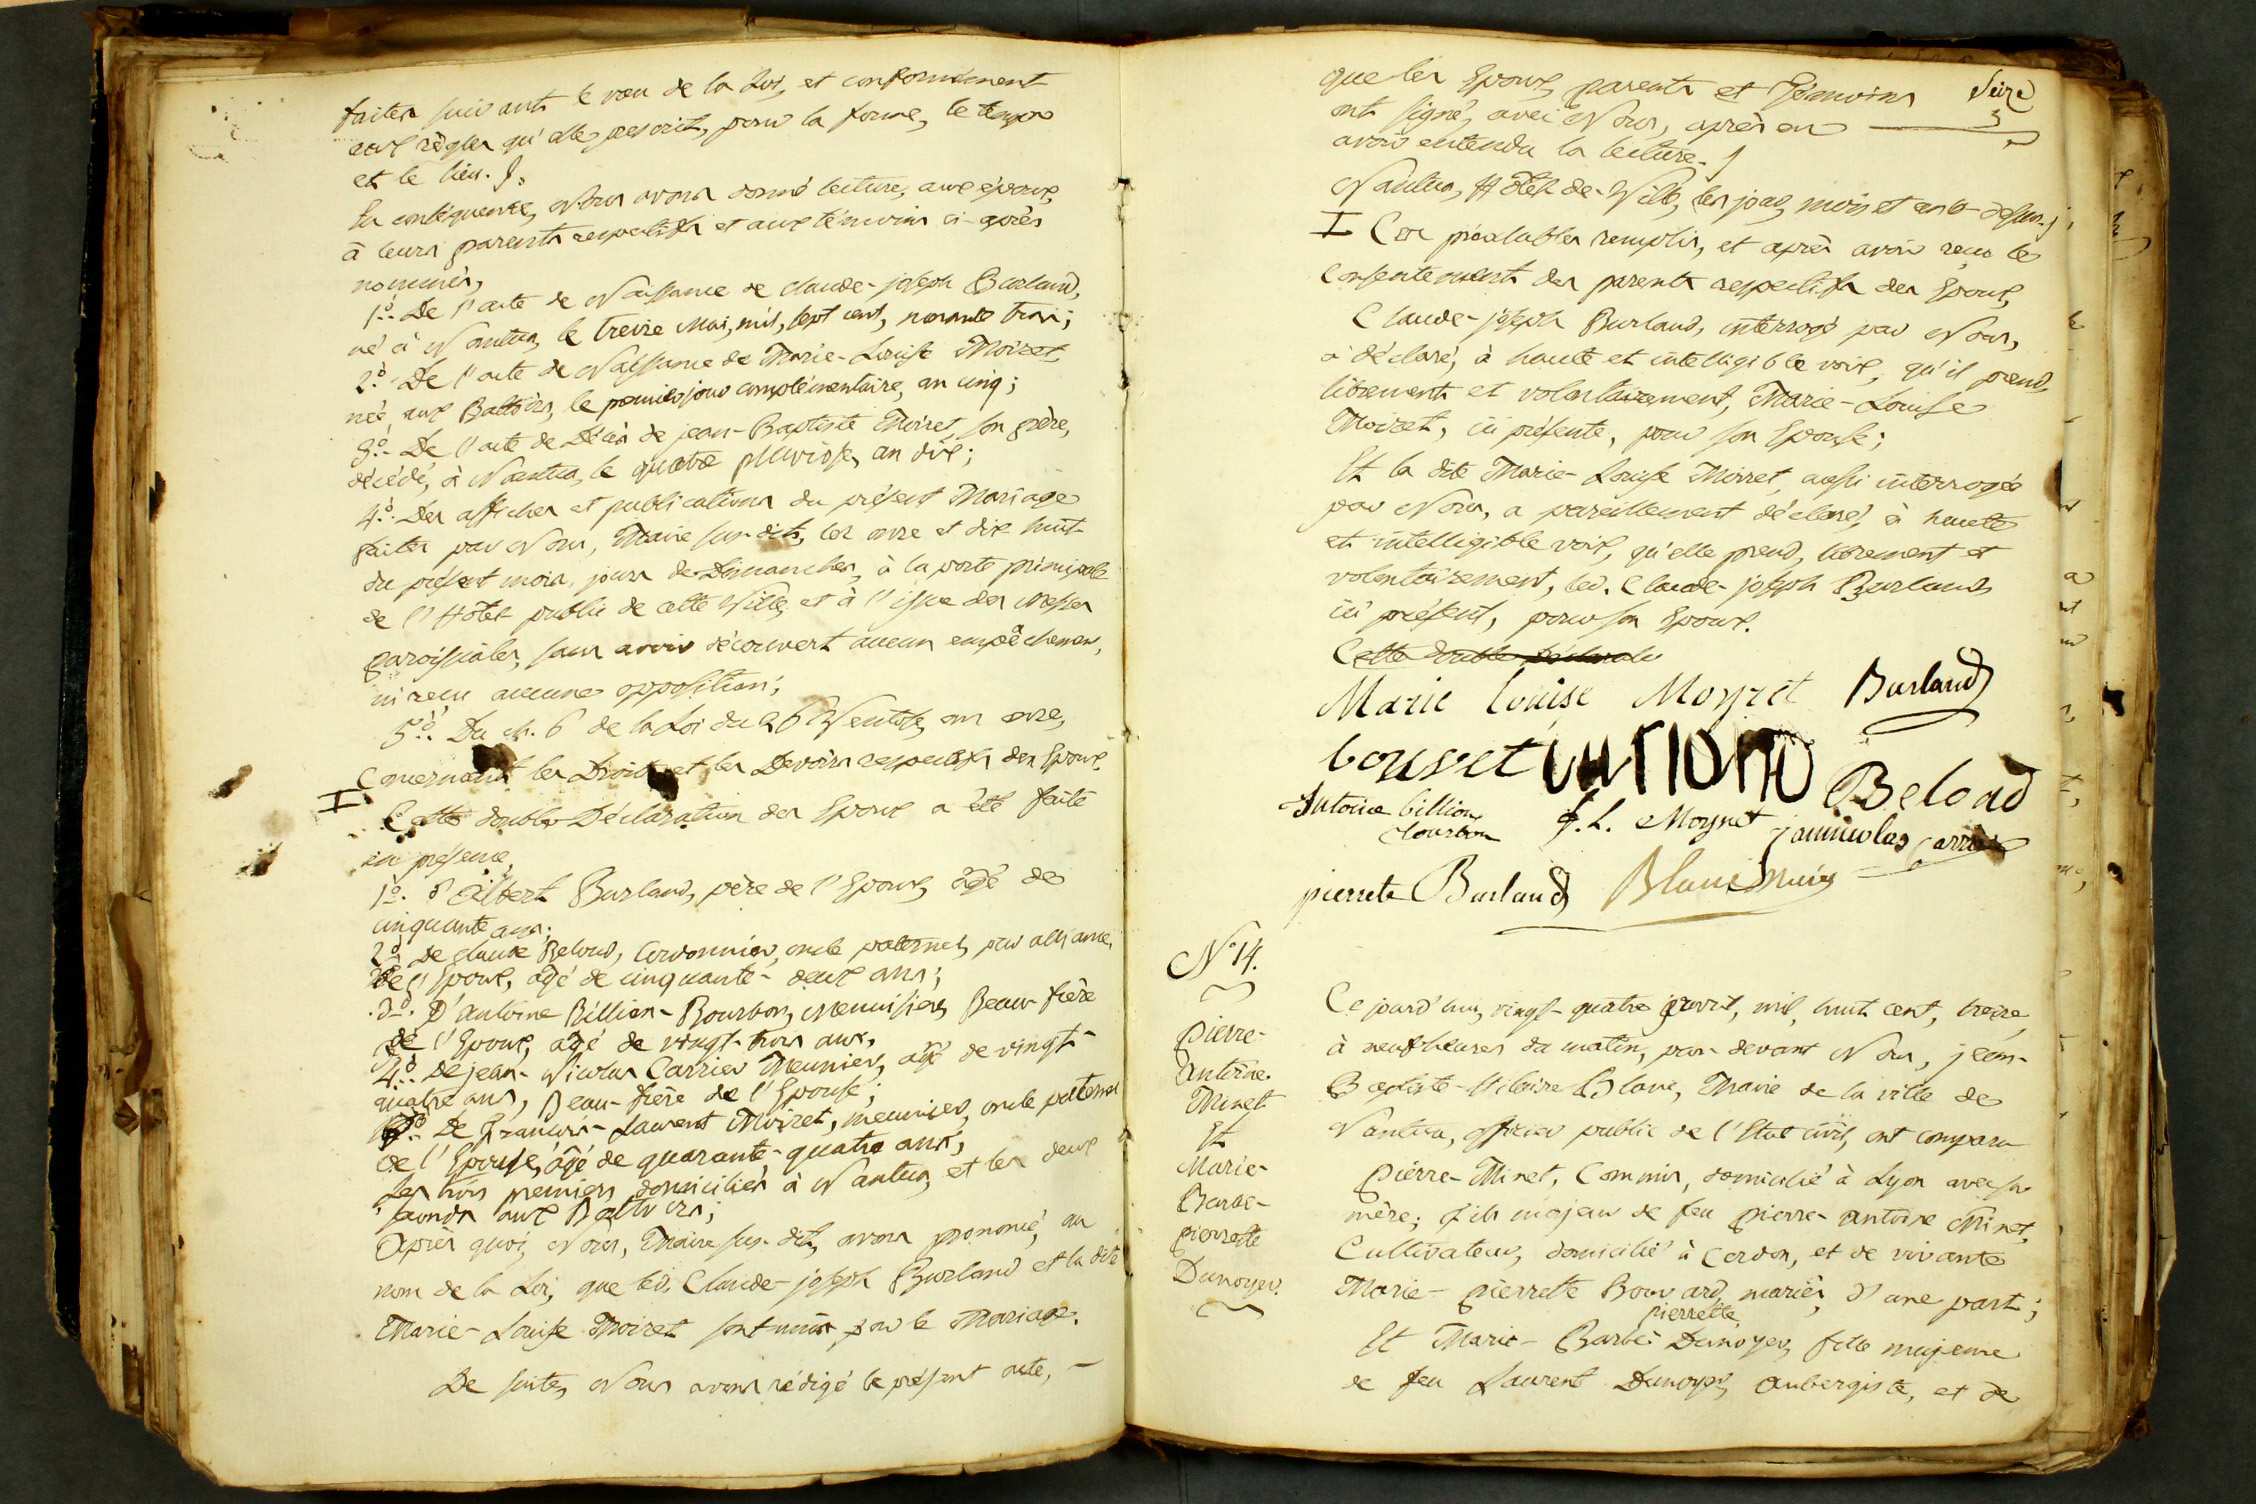 faites suivant le vœu de la Loi, et conformément
aux règles qu'elle prescrit, pour la forme, le temps
et le lieu.
En conséquence, Nous avons donné lecture, aux époux,
à leurs parents respectifs et aux témoins ci-après
nommés,
1º. De l'acte de Naissance de claude-joseph Burland,
né à Nantua, le treize Mai, mil, sept cent, nonante trois;
2º. De l'acte de Naissance de Marie-Louise Moiret,
née aux Battoirs, le premier jour complémentaire, an cinq;
3º. De l'acte de Décès de jean-Baptiste Moiret, son père,
décédé, à Nantua, le quatre pluviôse, an dix;
4º. Des affiches et publications du présent Mariage
faites par Nous, Maire sus-dit, les onze et dix huit
du présent mois, jours de Dimanches, à la porte principale
de l'Hôtel public de cette Ville, et à l'issue des Messes
paroissiales, sans avoir découvert aucun empêchement,
ni reçu aucune opposition;
5º. Du ch. 6 de la Loi du 26 Ventôse, an onze,
Concernant les Droits et les Devoirs respectifs des Epoux.
I
Cette double Déclaration des Epoux a été faite
en présence,
1º. d'Albert Burland, père de l'Epoux, âgé de
cinquante ans;
2º. De claude Beloud, Cordonnier, oncle paternel, par alliance,
de l'Epoux, âgé de cinquante-deux ans;
3º. D'antoine Billion-Bourbon, Menuisier, Beau-frère
de l'Epoux, âgé de vingt-trois ans,
4º. De jean-Nicolas Carrier Meunier, âgé de vingt-
quatre ans, Beau-frère de l'Epouse;
5º. De François-Laurent Moiret, meunier, oncle paternel
de l'Epouse, âgé de quarante-quatre ans;
Les trois premiers domiciliés à Nantua, et les deux
seconds aux Battoirs;
Après quoi, Nous, Maire sus-dit, avons prononcé, au
nom de la Loi, que led. Claude-joseph Burland et la dite
Marie-Louise Moiret sont unis par le Mariage.
De suite, Nous avons rédigé le présent acte,
que les Epoux, parents et Témoins
ont signé, avec Nous, après en
avoir entendu la lecture.
Seize
Nantua, Hôtel-de-Ville, les jour, mois et an ci-dessus.
I Ces préalables remplis, et après avoir reçu le
Consentement des parents respectifs des Epoux,
Claude-joseph Burland, interrogé par Nous,
a déclaré, à haute et intelligible voix, qu'il prend,
librement et volontairement, Marie-Louise
Moiret, ici présente, pour son Epouse;
Et la dite Marie-Louise Moiret, aussi interrogée
par Nous, a pareillement déclaré, à haute
et intelligible voix, qu'elle prend, librement et
volontairement, led. Claude-joseph Burland
ici présent, pour son Epoux.
Cette double Déclaration
Marie louise Moyret Burland
bouvet
Beloud
Antoine billion
bourbon
f. L. Moyret
jannicolas carrier
pierrete Burland Blanc Maire
Nº 14.
Pierre-
Antoine
Minet
Et
Marie-
Barbe-
pierrette
Dunoyer.
Ce jourd'hui, vingt-quatre avril, mil, huit cent, treize,
à neuf heures du matin, par-devant Nous, jean-
Baptiste-hilaire Blanc, Maire de la ville de
Nantua, officier public de l'Etat civil, ont comparu
Pierre-Minet, Commis, domicilié à Lyon avec sa
mère; fils majeur de feu pierre-antoine Minet,
Cultivateur, domicilié à Cerdon, et de vivante
Marie-pierrette Bouvard, mariés, d'une part;
pierrette
Et Marie-Barbe Dunoyer, fille majeure
de feu Laurent Dunoyer, aubergiste, et de